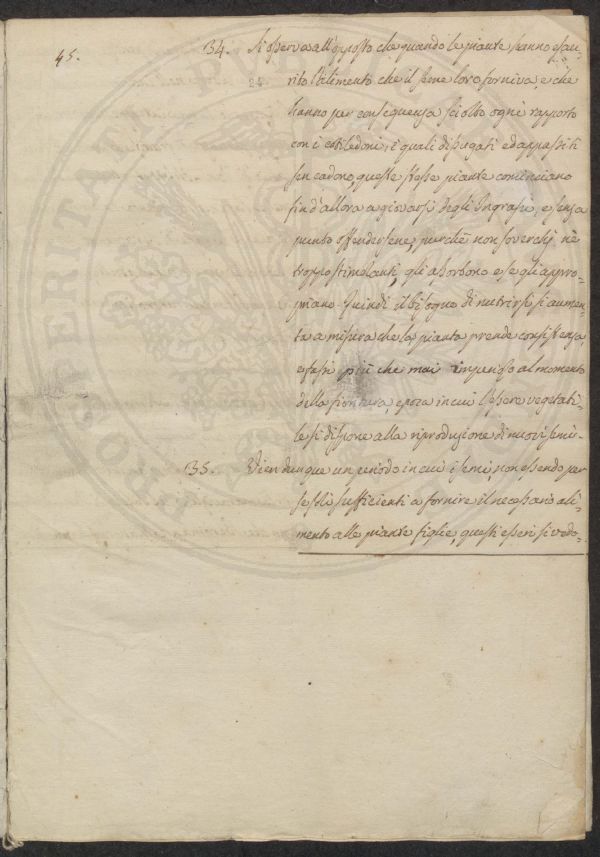 45.
134. Si osserva all'opposto che quando le piante hanno esau-
rito l'alimento che il seme loro forniva, e che
hanno per conseguenza sciolto ogni rapporto
con i cotiledoni, i quali disugati ed appassiti
sen cadono, queste stesse piante cominciano
fin d'allora a giovarsi degli Ingrassi, e senza
punto offendersene, purchè non soverchj, nè
troppo stimolanti, gli assorbono e se gli appro-
priano. Quindi il bisogno di nutrirsi si aumen-
ta a misura che la pianta prende consistenza,
e fassi più che mai imperioso al momento
della fioritura, epoca in cui l'essere vegetabi-
le si dispone alla riproduzione di nuovi semi.
135. Vi è dunque un periodo in cui i semi, non essendo per
se soli sufficienti a fornire il necessario ali-
mento alle piante figlie, questi esseri si vedo-